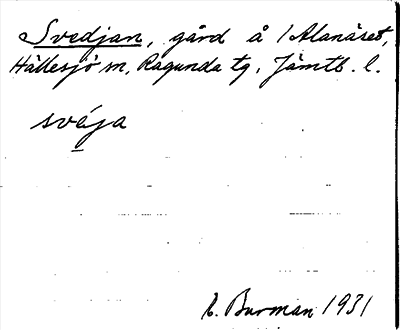 Svedjan, gård å Alanäset,
Hällesjö sn, Ragunda tg, Jämtl. l.
svéja
E. Burman 1931